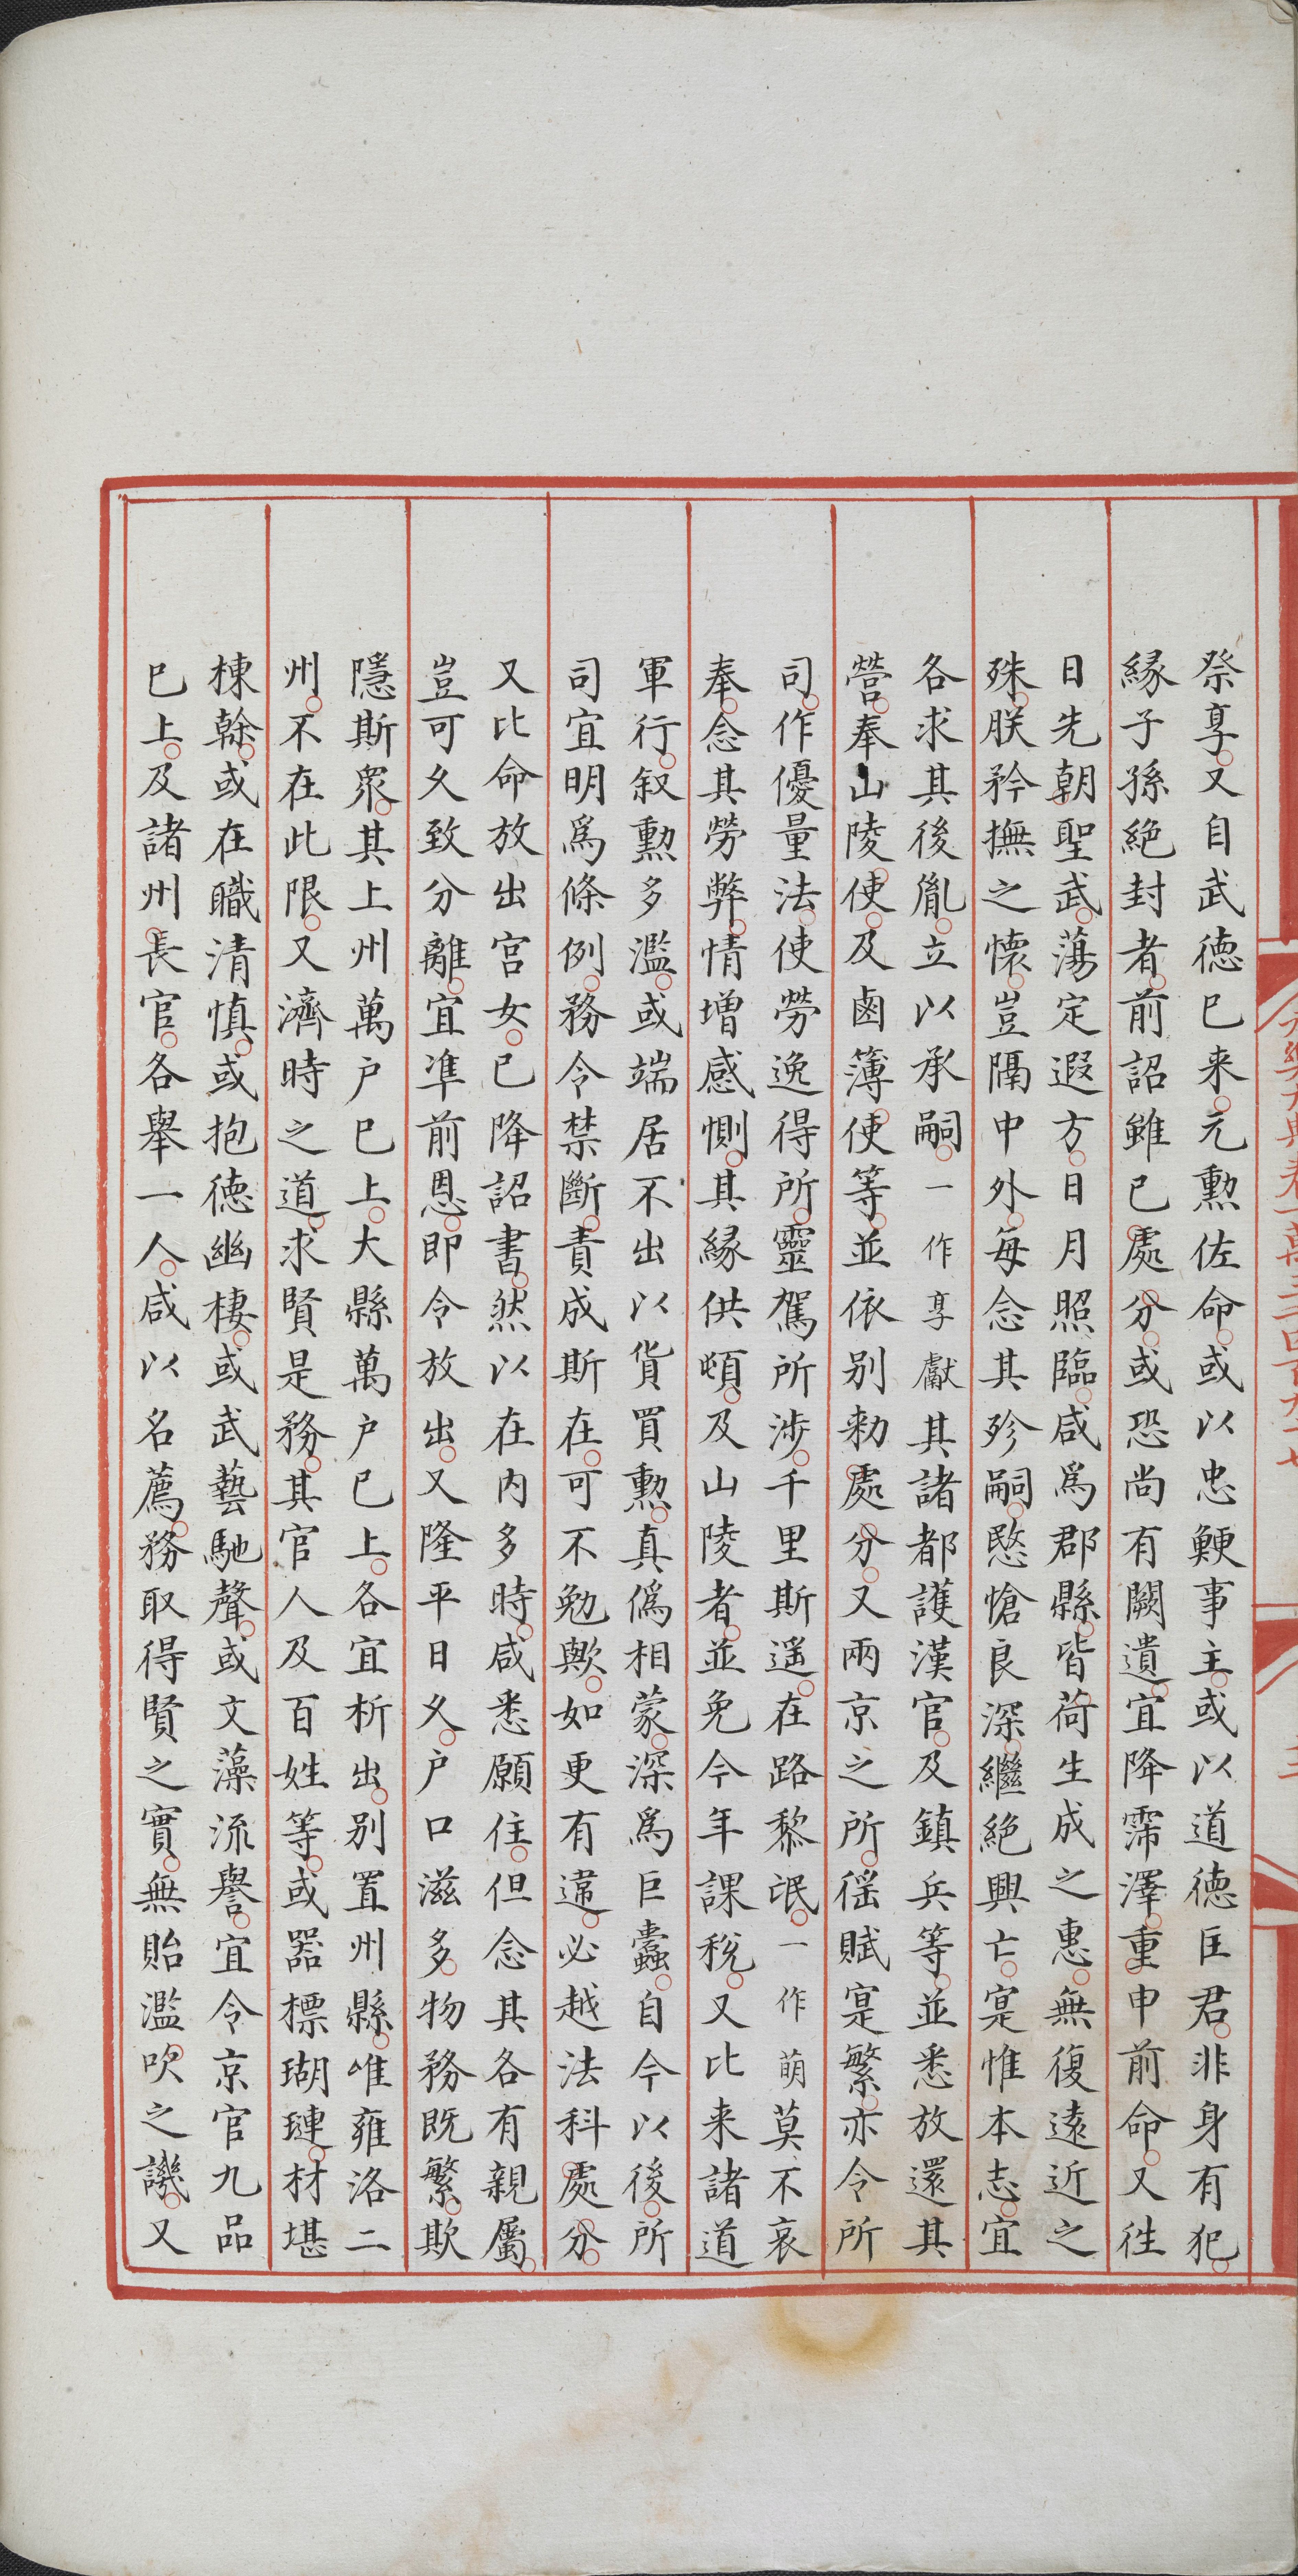 祭享又自武德已来元勲佐命或以忠鯁事主或以道德匡君非身有犯
縁子孫絶封者前詔雖已處分或恐尚有闕遺宜降霈澤重申前命又徃
日先朝聖武蕩定遐方日月照臨咸爲郡縣皆荷生成之惠無復遠近之
殊朕矜撫之懷豈隔中外每念其殄嗣愍愴良深繼絶興亡寔惟本志宜
各求其後胤立以承嗣一作享獻其諸都護漢官及鎮兵等並悉放還其
營奉山陵使及鹵簿使等並依别勑處分又兩京之所徭賦寔繁亦令所
司作優量法使勞逸得所靈駕所涉千里斯遥在路黎氓一作萌莫不哀
奉念其勞弊情增感惻其縁供頓及山陵者並免今年課稅又比来諸道
軍行叙勲多濫或端居不出以貨買勲真僞相蒙深爲巨蠹自今以後所
司宜明爲條例務令禁斷責成斯在可不勉歟如更有違必越法科處分
又比命放出宫女已降詔書然以在内多時咸悉願住但念其各有親屬
豈可久致分離宜凖前恩即令放出又隆平日久户口滋多物務既繁欺
隱斯衆其上州萬户已上大縣萬户已上各宜析出别置州縣唯雍洛二
州不在此限又濟時之道求賢是務其官人及百姓等或器標瑚璉材堪
棟榦或在職清慎或抱德幽棲或武藝馳聲或文藻流譽宜令京官九品
已上及諸州長官各舉一人咸以名薦務取得賢之實無貽濫吹之譏又